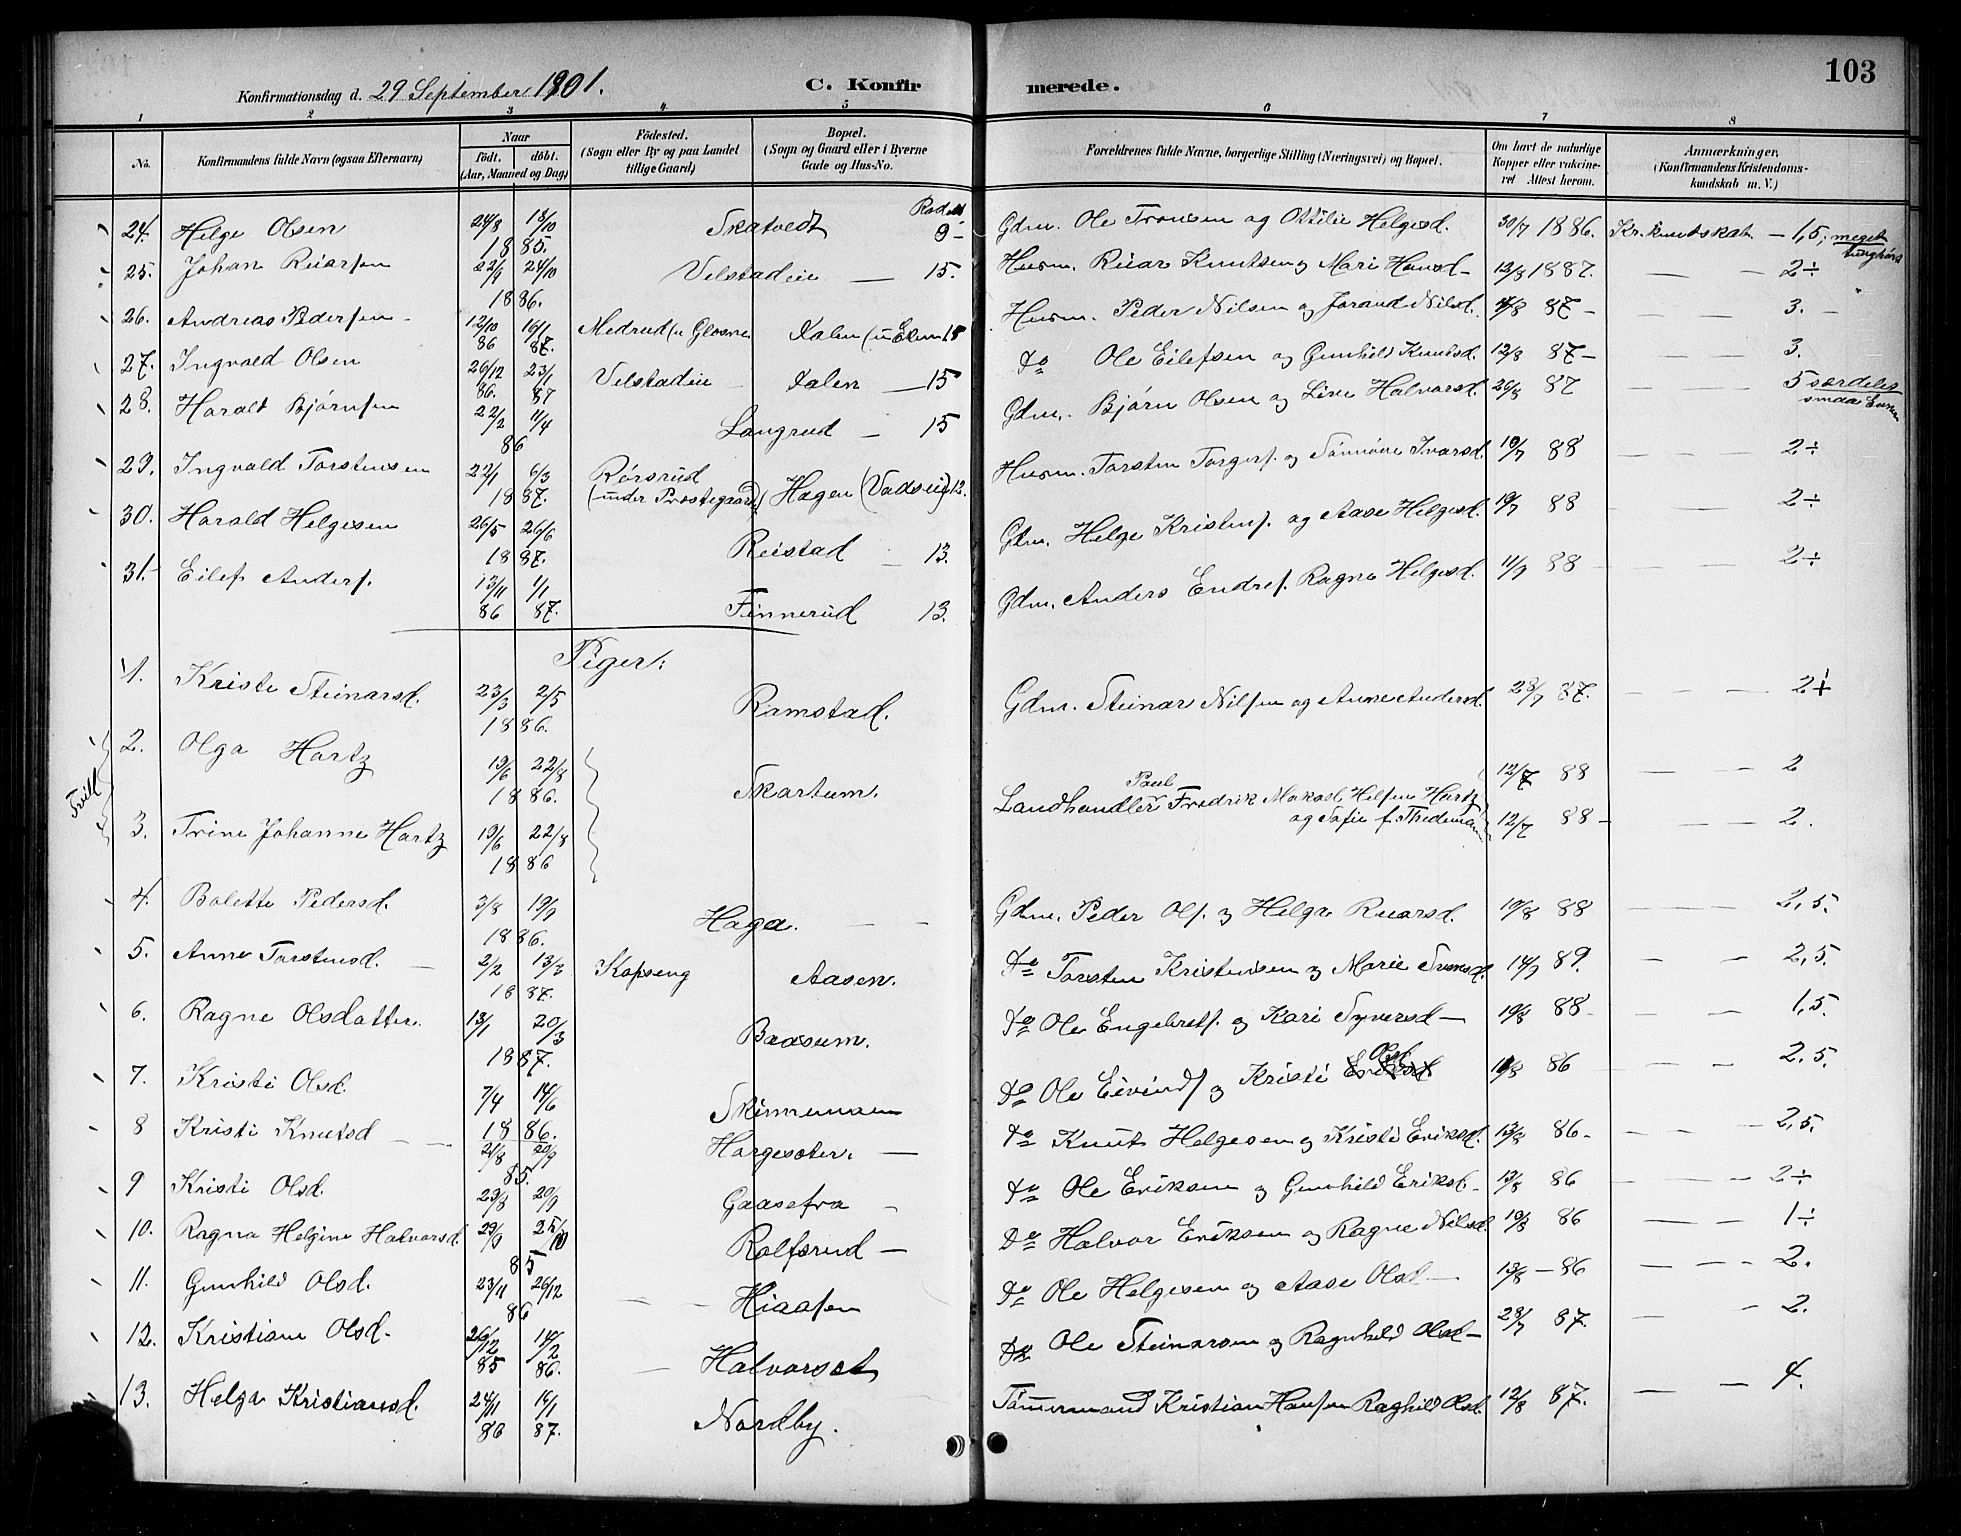 103
Konfirmationsdag d. 29 September 1901. C. Konfirmerede.
1 2 3 4 5 6 7 8
No. Konfirmandens fulde Navn (ogsaa Efternavn) Naar født. døbt. (Aar, Maaned og Dag) Fødested. (Sogn eller By og paa Landet tillige Gaard) Bopæl. (Sogn og Gaard eller i Byerne Gade og Hus-No. Forældrenes fulde Navne, borgerlige Stilling (Næringsvei) og Bopæl. Om havt de naturlige Kopper eller vaksineret Attest herom. Anmærkninger, (Konfirmandens Kristendomskundskab m. V.)
24. Helge Olsen 24/8 18/10 1885. Skatvedt 9 - Gdm. Ole Tronsen og Ottilie Helgesd. 30/7 1886. Kr. kundskab - 1,5, meget tunghørt
25. Johan Ruarsen 22/9 24/10 1886. Velstadeie — 15. Husm. Ruar Knutsen og Mari Hansd - 12/8 1887. — — 2÷
26. Andreas Pedersen - 12/10 86 16/1 87. Medrud (u Glesne Dalen (u Ekern 15 Husm. Peder Nilsen og Jorand Nilsd. 11/8 87 - — — 3. -
27. Ingvald Olsen 26/12 86. 23/1 87 Velstadeie Dalen — 15 do Ole Eilefsen og Gunhild Knutsd. 12/8 87 - — — 3.
28. Haralt Bjørnsen 22/2 11/4 86 Langrud — 15 Gdm. Bjørn Olsen og Live Halvorsd. 26/8 87 5 særdeles smaa Evner
29. Ingvald Torstensen 22/1 6/3 1887. Rørsrud (under Prestegaard) Hagen (Vadseie) 12. Husm. Torsten Torgers. og Sønnøve Ivarsd. 19/7 88 — — 2÷
30. Harald Helgesen 26/5 26/6 1887. Reistad — 13. Gdm. Helge Kristens. og Aase Helgesd. 19/7 88 — — 2÷
31. Eilef Anders. 13/11 86 1/1 87. Finnerud 13. Gdm. Anders Endres. Ragne Helgesd. 11/9 88 — — 2÷
Piger:
1. Kristi Steinarsd. 23/3 2/5 1886. Ramstad. Gdm. Steinar Nilsen og Anne Andersd. 28/7 87. — — —
2. Olga Hartz 19/6 22/8 1886. Skartum. 12/7 88 — — 2
Landhandler Paul Fredrik Hartz
og Sofie f. Thedemann
3. Trine Johanne Hartz 19/6 22/8 1886 12/7 88 - — — 2.
4. Bolette Pedersd. 3/8 19/9 1886. Haga. — Gdm. Peder Ols. og Helga Ruarsd. 19/8 88 — — — 2,5.
5. Anne Torstensd. — 2/2 13/3 1887. Kopseng Aasen. do Torsten Kristensen og Marie Svensd. 14/9 89. — — 2,5.
6. Ragne Olsdatter. 13/1 20/3 1887. Baasum. do Ole Engebrets. og Kari Syversd — 19/8 88 - — — 1,5.
7. Kristi Olsd. 7/4 14/6 1886. do Ole Eivinds og Kristi Olsd. 11/8 86 2,5.
8 Kristi Knutsd - - 21/8 20/9 85. — do Knut Helgesen og Kristi Eriksd. 13/8 86 - — — 2,5.
9 Kristi Olsd. 23/8 20/9 Gaasefra - do Ole Eriksen og Gunhild Eriksd. 13/8 86 — — 2÷
10. Ragna Helgine Halvorsd. 29/9 25/10 85 Rolfsrud — do Halvor Eriksen og Ragne Nilsd. 19/8 86 — — 1÷
11. Gunhild Olsd. 23/11 26/12 86 Hiaasen do Ole Helgesen og Aase Olsd - 13/8 - 86 — — — 2.
12. Kristiane Olsd. 26/12 85 14/2 86. Halvorset do Ole Steinarsen og Ragnhild Olsd - 28/7 87. — — 2.
13. Helga Kristiansd. 24/11 86 16/1 87. Nordby. Tømmermand Kristian Hansen Raghild Olsd. 12/8 87. — — 4.